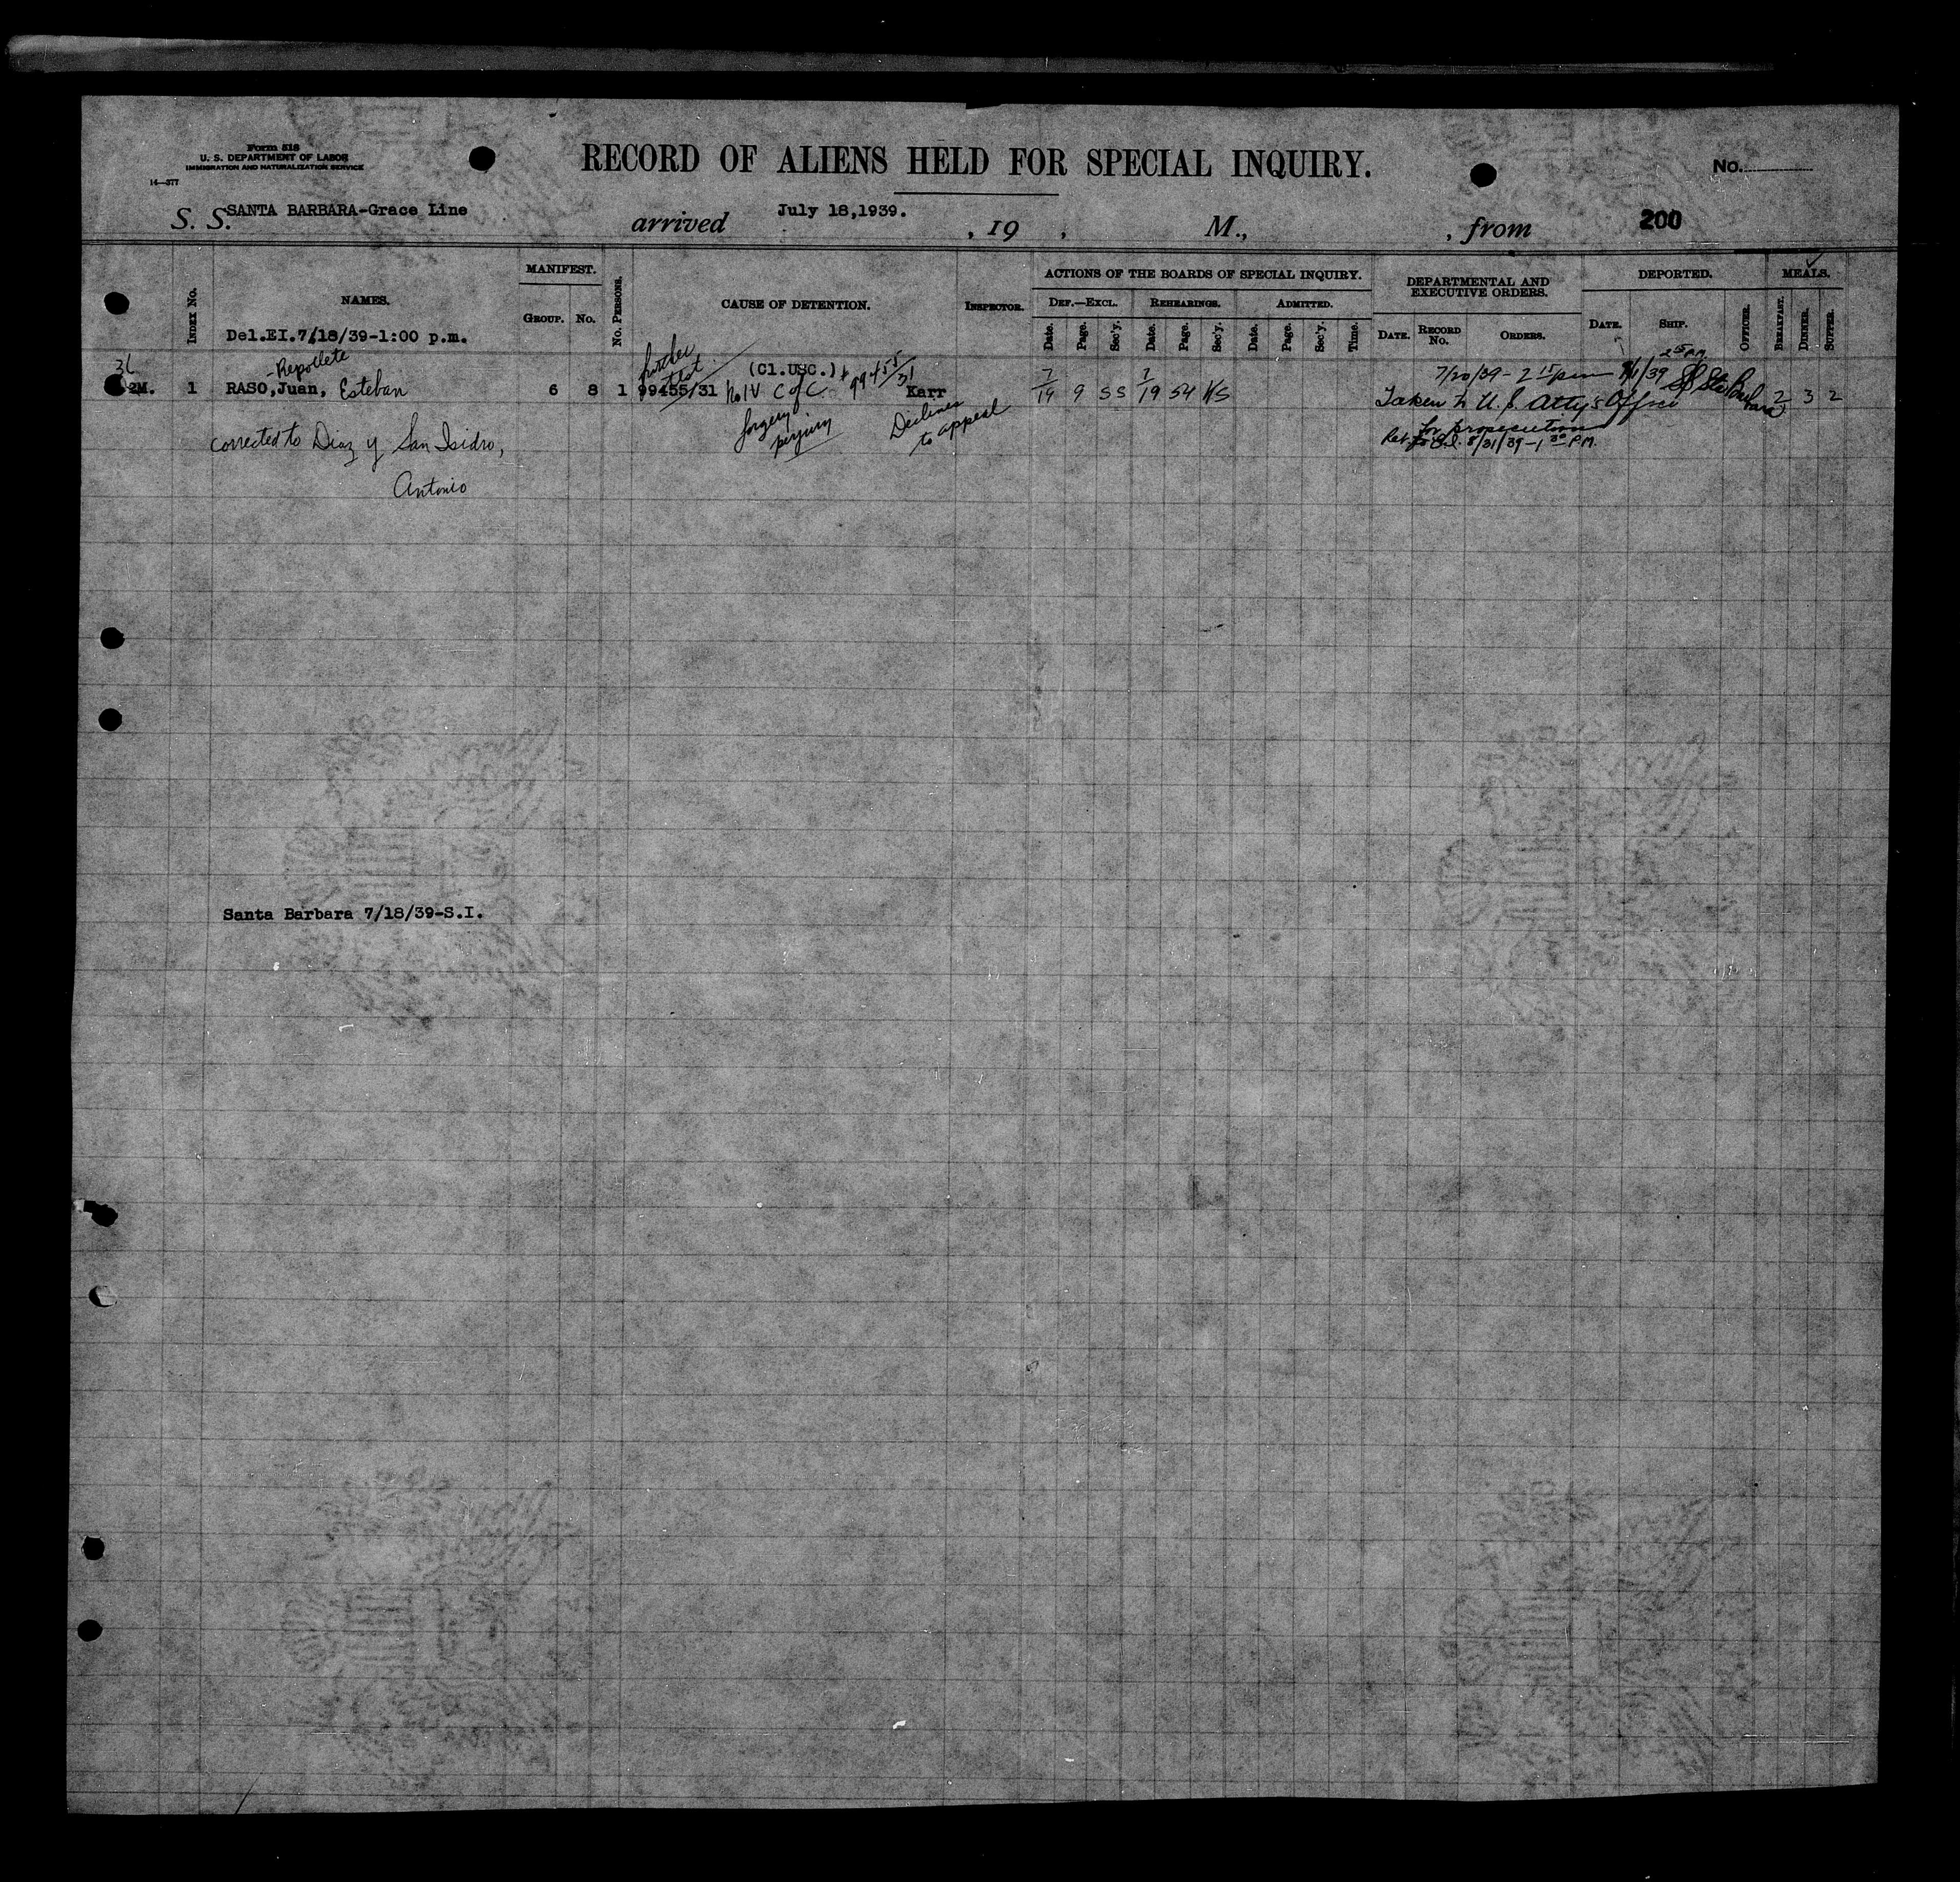 Form 518
U. S. DEPARTMENT OF LABOR
IMMIGRATION AND NATURALIZATION SERVICE
14—377
RECORD OF ALIENS HELD FOR SPECIAL INQUIRY.
No.
S. S. SANTA BARBARA-Grace Line arrived July 18,1939. , 19 , M., , from 200
INDEX No.
NAMES.
MANIFEST.
GROUP. No.
No. PERSONS.
CAUSE OF DETENTION.
INSPECTOR.
ACTIONS OF THE BOARDS OF SPECIAL INQUIRY.
DEF.—EXCL. REHEARINGS. ADMITTED.
Date. Page. Sec'y. Date. Page. Sec'y. Date. Page. Sec'y. Time.
DEPARTMENTAL AND
EXECUTIVE ORDERS.
DATE. RECORD No. ORDERS.
DEPORTED.
DATE. SHIP. OFFICER.
MEALS.
BREAKFAST. DINNER. SUPPER.
Del.EI.7/18/39-1:00 p.m.
-Repollete
2M. 1 RASO,Juan, Esteban 6 8 1 99455/31 (Cl.USC.) No IV C of C 99455/31 Karr 7/19 9 SS 7/19 54 HS 7/20/39 - 2 15 pm 9/1/39 SS Sta Barbara 2 3 2
forgery
perjury
Declines
to appeal
Taken to U. S. Atty's Office
for prosecution
Ret. 8/31/39 - 1 30 P.M.
corrected to Diaz y San Isidro,
Antonio
Santa Barbara 7/18/39-S.I.